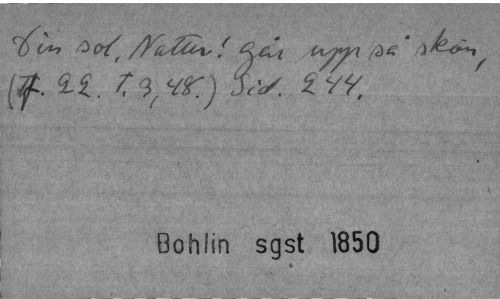 Din sol, Natur! går upp så skön,
(Tf. 22. T. 3, 48.) Sid. 244.
Bohlin sgst 1850